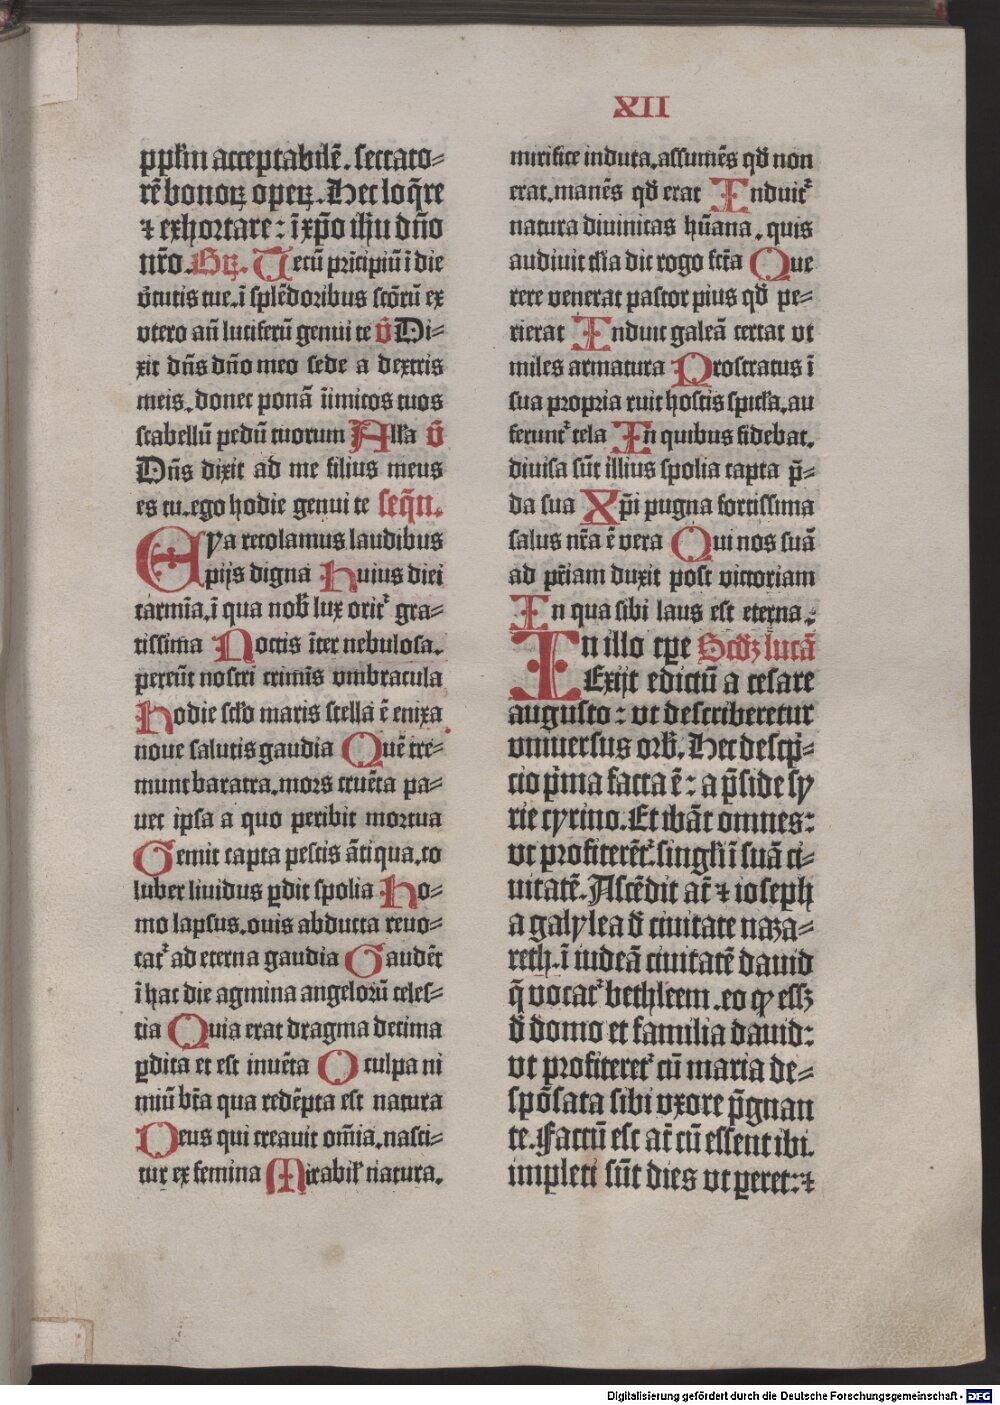 XII
pplm̄ acceptabilē. sectato⸗
rē bonoꝝ opeꝝ. Hec loq̄re
⁊ exhortare: ī xp̄o ih̄u dn̄o
nr̄o. Gꝝ. Tecū pricipiū ī die
v̄tutis tue. ī splēdoribus scōrū ex
vtero an̄ luciferū genui te v̄ Di⸗
xit dn̄s dn̄o meo sede a dextris
meis. donec ponā inimicos tuos
scabellū pedū tuorum All'a v̄
Dn̄s dixit ad me filius meus
es tu. ego hodie genui te seq̄n.
Eya recolamus laudibus
pijs digna Huius diei
carmīa. ī qua nob' lux orit᷑ gra⸗
tissima Noctis īter nebulosa.
pereūt nostri crimīs vmbracula
Hodie sclo maris stella ē enixa
noue salutis gaudia Quē tre⸗
munt baratra. mors cruēta pa⸗
uet ipsa a quo peribit mortua
Gemit capta pestis āti qua. co
luber liuidus ꝑdit spolia Ho⸗
mo lapsus. ouis abducta reuo⸗
cat᷑ ad eterna gaudia Gaudēt
ī hac die agmina angelorū celes⸗
tia Quia erat dragma decima
ꝑdita et est inuēta O culpa ni
miū bt̄a qua redēpta est natura
Deus qui creauit om̄ia. nasci⸗
tur ex femina Mirabil' natura.
mirifice induta. assumēs qd̄ non
erat. manēs qd̄ erat Induit᷑
natura diuinitas hūana. quis
audiuit tl'ia dic rogo fc̄ta Que
rere venerat pastor pius qd̄ pe⸗
rierat Induit galeā certat vt
miles armatura Prostratus ī
sua propria ruit hostis spicl'a. au
ferunt᷑ tela In quibus fidebat.
diuisa sūt illius spolia capta p̄⸗
da sua Xp̄i pugna fortissima
salus nr̄a ē vera Qui nos suā
ad pr̄iam duxit post victoriam
In qua sibi laus est eterna.
In illo tp̄e Scd'ꝫ lucā
Exijt edictū a cesare
augusto: vt describeretur
vniuersus orb'. Hec descp̄⸗
cio p̄ma facta ē: a p̄side sy
rie cyrino. Et ibāt omnes:
vt profiterēt᷑ singl'i ī suā ci⸗
uitatē. Ascēdit at̄ ⁊ ioseph
a galylea d̄ ciuitate naza⸗
reth. ī iudeā ciuitatē dauid
q̄ vocat᷑ bethleem. eo ꝙ essꝫ
d̄ domo et familia dauid:
vt profiteret᷑ cū maria de⸗
spōsata sibi vxore p̄gnan
te. Factū est at̄ cū essent ibi.
impleti sūt dies vt ꝑeret: ⁊
Digitalisierung gefördert durch die Deutsche Forschungsgemeinschaft - DFG